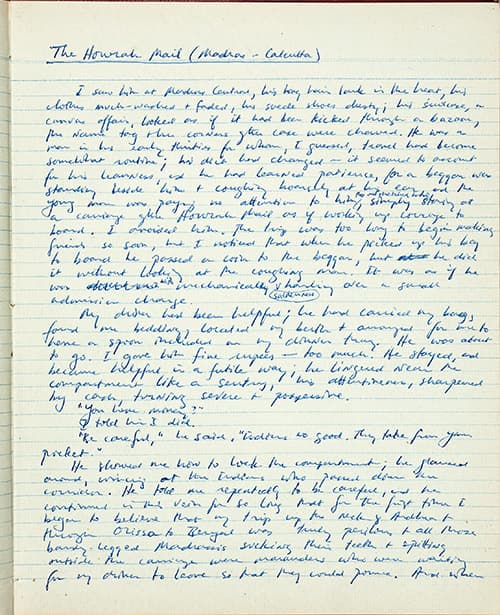 The Howrah Mail (Madras - Calcutta)
I saw him at Madras Central, his long hair lank in the heat, his
clothes much-washed & faded, his suede shoes dusty; his suitcase, a
canvas affair, looked as if it had been kicked through a bazaar,
the name tag & the corners of the case were chewed. He was a
man in his early thirties for whom, I guessed, travel had become
somewhat routine; his diet had changed – it seemed to account
for his leanness, & he had learned patience, for a beggar was
standing beside him & coughing hoarsely at his ear, and the
young man was paying no attention to him, simply staring at
a carriage of the Howrah Mail as if working up courage to
board. I avoided him. The trip was too long to begin making
friends so soon, but I noticed that when he picked up his bag
to board he passed a coin to the beggar, but he did
it without looking at the coughing man. It was as if he
was mechanically handing over a small
admission charge.
My driver had been helpful; he had carried my bags,
found me bedding, located my berth & arranged for me to
have a spoon included on my dinner tray. He was about
to go. I gave him five rupees – too much. He stayed, and
became helpful in a futile way; he lingered near the
compartment like a sentry, his attentiveness, sharpened
by cash, turning severe & possessive.
"You have money?"
I told him I did.
"Be careful," he said, "Indians no good. They take from your
pocket."
He showed me how to lock the compartment; he glanced
around, wincing at the Indians who passed down the
corridor. He told me repeatedly to be careful, and he
continued in this vein for so long that for the first time I
began to believe that my trip up to Andhra &
through Orissa to Bengal was truly perilous & all those
bandy-legged Madrassis sucking their teeth & spitting
outside the carriage were marauders who were waiting
for my driver to leave so that they could pounce. And when